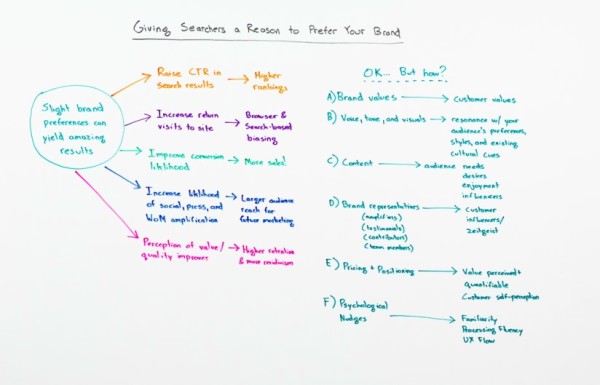 Giving Searchers a Reason to Prefer Your Brand
Slight brand
preferences can
yield amazing
results
Raise CTR in
search results
Higher
rankings
Increase return
visits to site
Browser &
Search-based
biasing
Improve conversion
likelihood
More sales!
Increase liklihood
of social, press, and
WoM amplification
Larger audience
reach for
future marketing
Perception of value/
quality improves
Higher retention
& more evangelism
OK... But how?
A) Brand values
Customer values
B) Voice, tone, and visuals
resonance w/ your
audience's preferences,
styles, and existing
cultural cues
C) Content
audience needs
desires
enjoyment
influencers
D) Brand representatives
(amplifiers)
(testimonials)
(contributors)
(team members)
Customer
influencers/
zeitgeist
E) Pricing + Positioning
Value perceived +
quantifiable
Customer self-perception
F) Psychological
Nudges
Familiarity
Processing Fluency
UX Flow